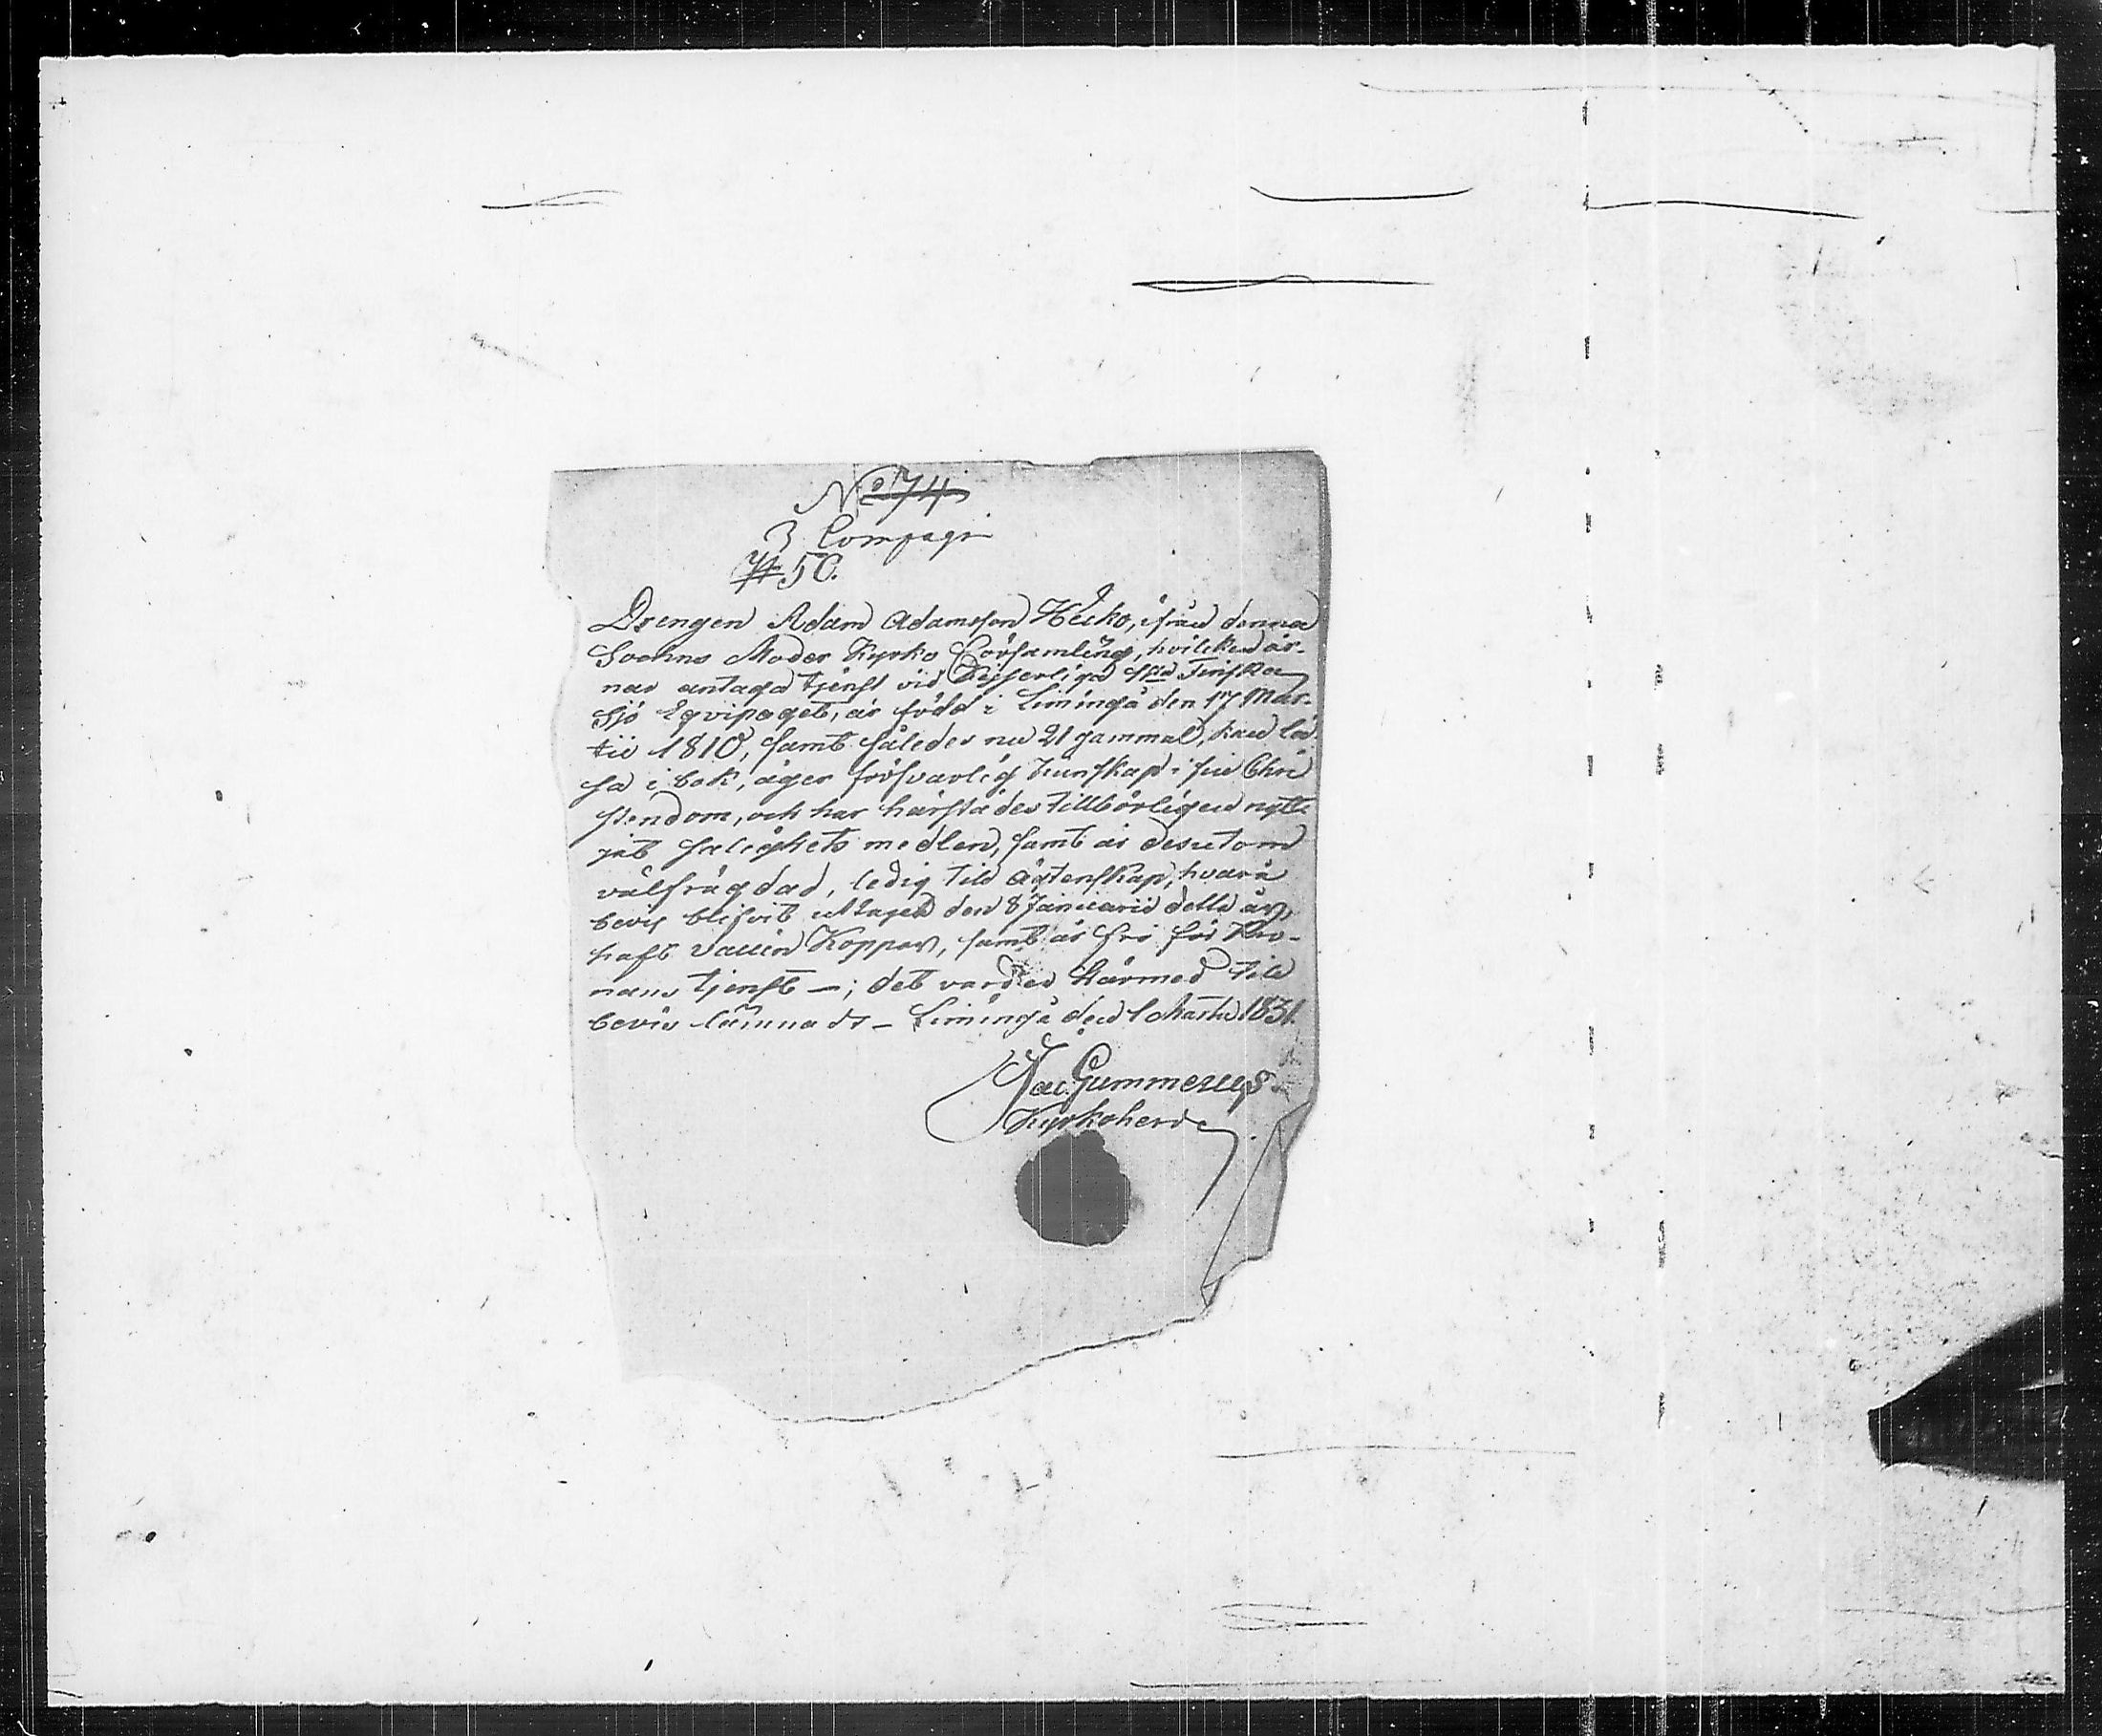 No 74
3 Compagn
# 50.
Drengen Adam Adamsson Heiko, ifrån denna
Sockns Moder Kyrko Församling, hvilken är-
nar antaga tjenst vid Kejserliga 1sta Finska
Sjö Eqvipaget, är född i Limingå den 17 Mar-
tii 1810, samt således nu 21 gammal, kan lä-
sa i bok, äger försvarlig kunskap i sin Chri
stendom, och har härstädes tillbörligen nytt-
jat salighets medlen, samt är desutom
välfrägdad, ledig till ägtenskap, hvarå
bevis blifvit uttaget den 8 Januarii detta år,
haft vaccin Koppor, samt är fri för Kro-
nans tjenst —; det varder härmed till
bevis lämnadt – Limingå den 10 Martii 1831.
Jac. Gummerus
Kyrkoherde